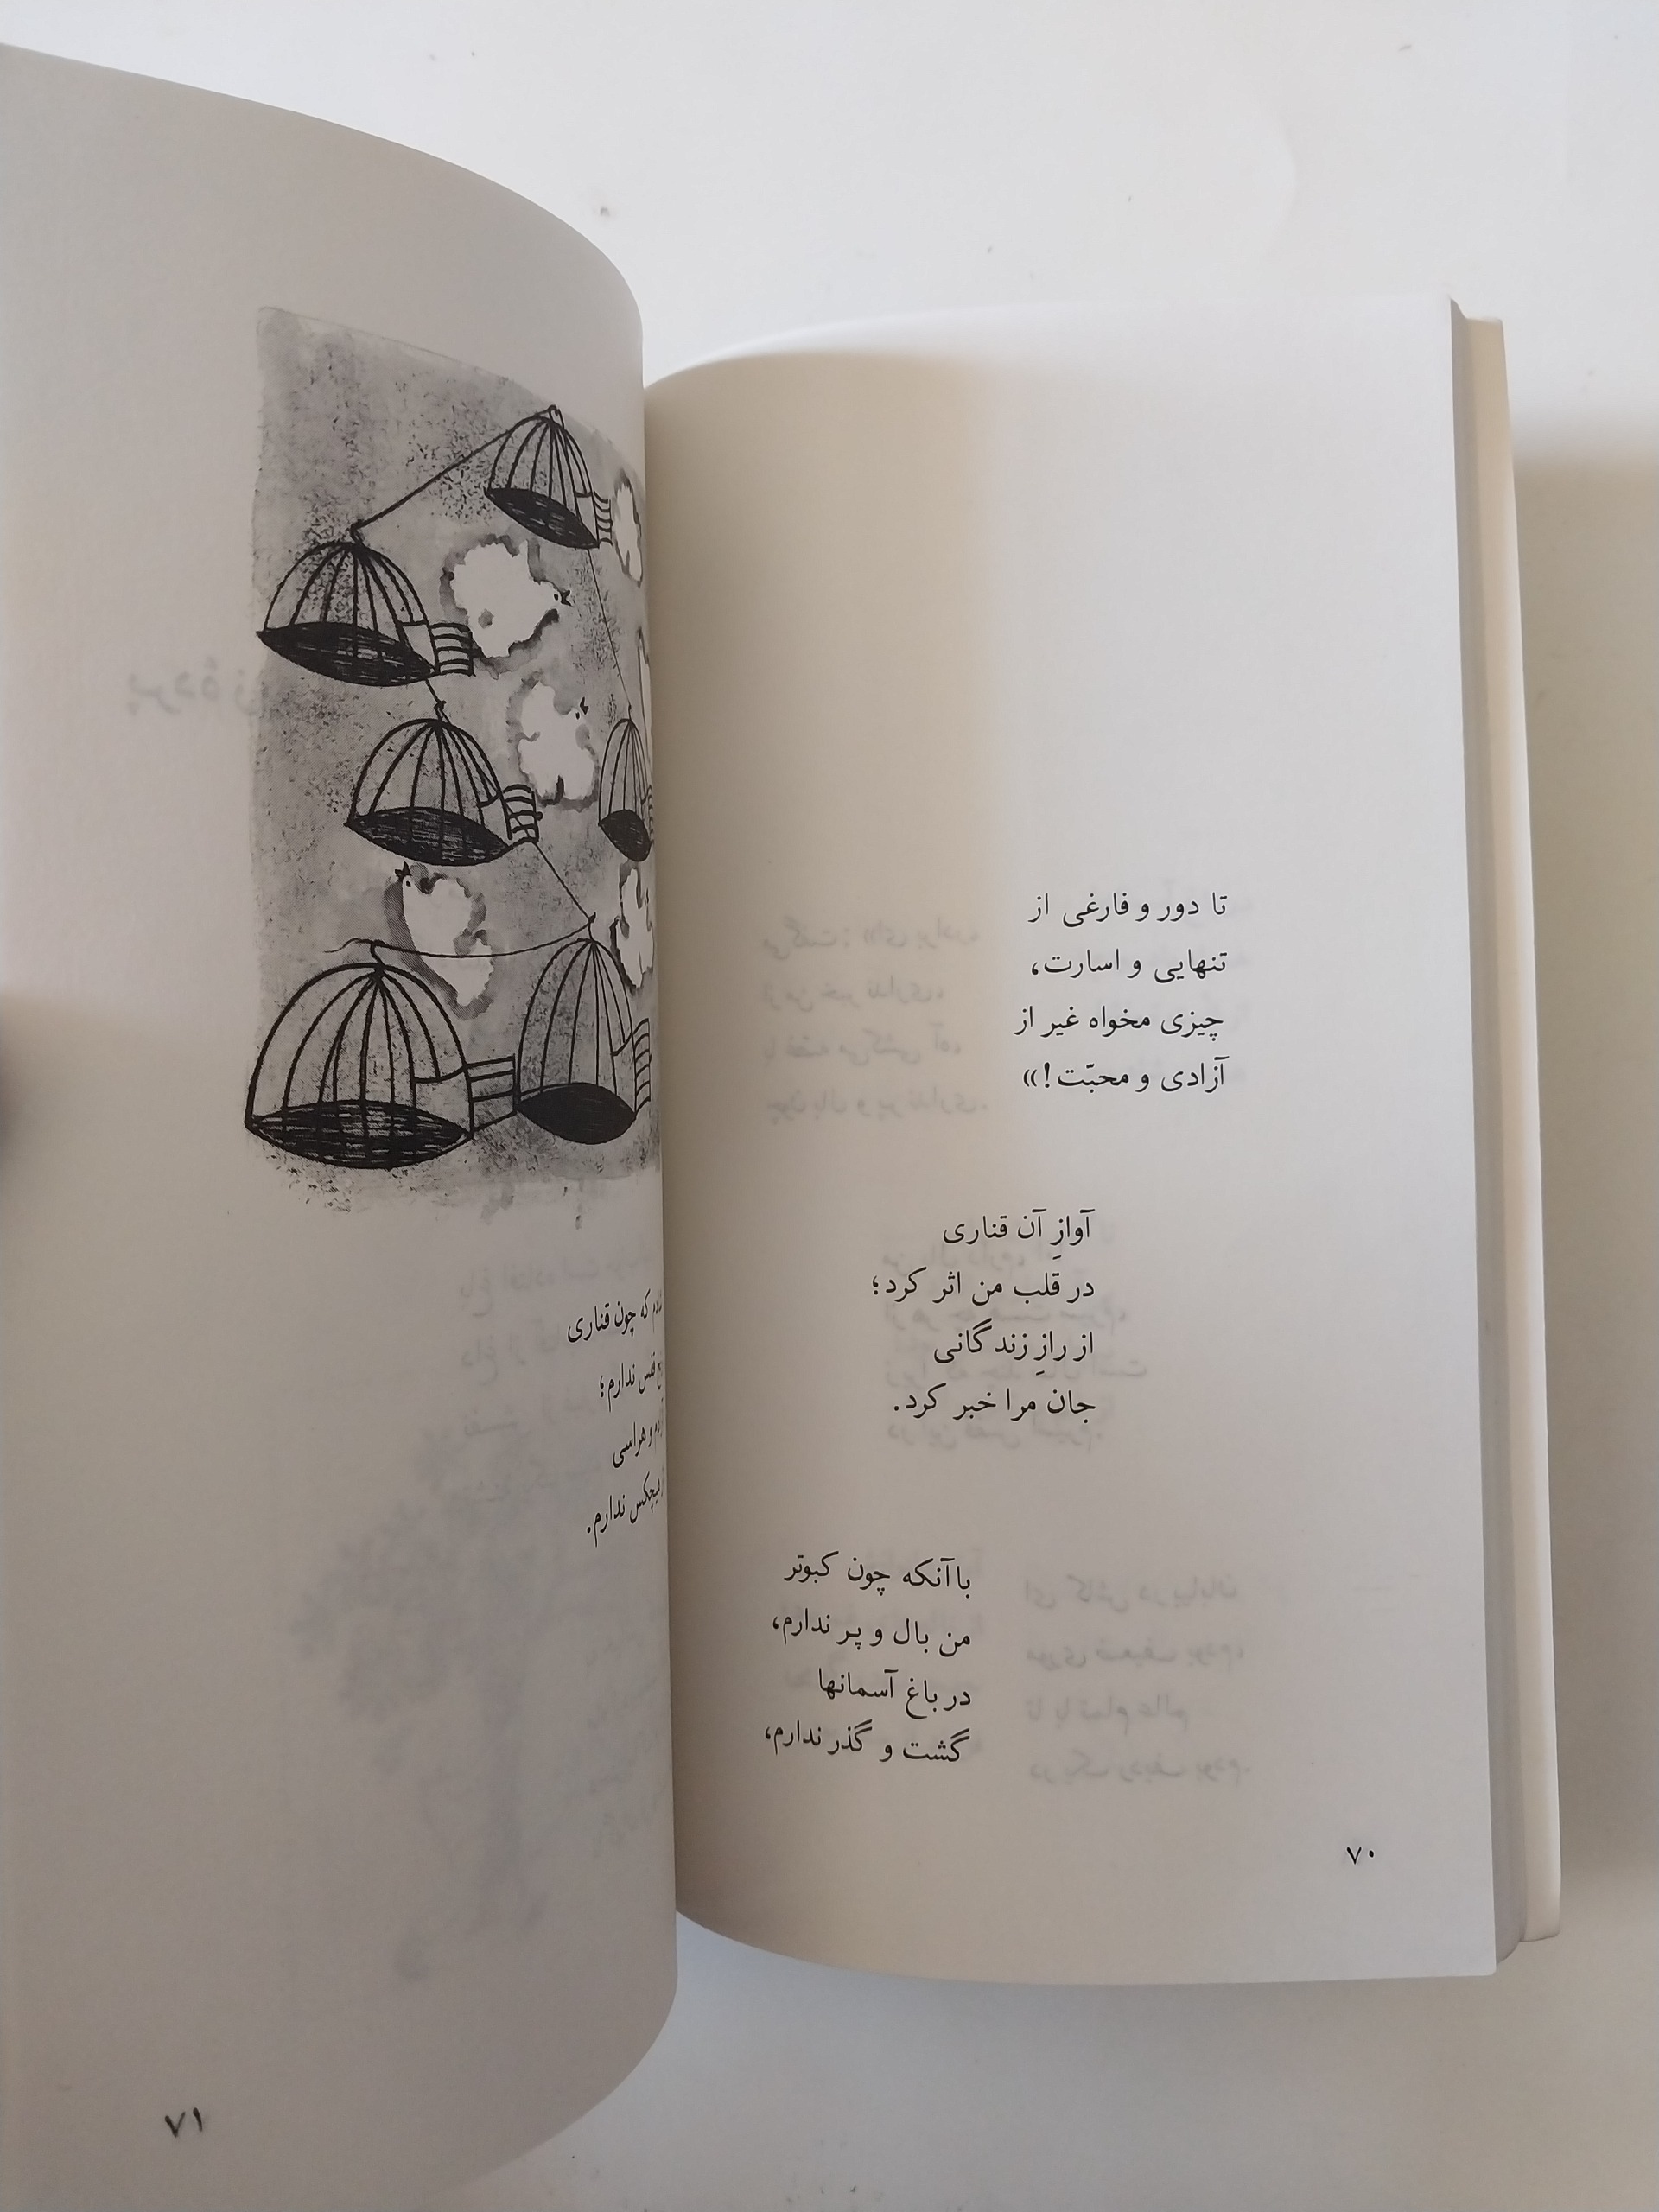 تا دور و فارغی از
تنهایی و اسارت،
چیزی مخواه غیر از
آزادی و محبّت!»
آوازِ آن قناری
در قلب من اثر کرد؛
از رازِ زندگانی
جان مرا خبر کرد.
باآنکه چون کبوتر
من بال و پر ندارم،
در باغ آسمانها
گشت و گذر ندارم،
۷۰
که چون قناری
قفس ندارم؛
و هراسی
هیچکس ندارم.
۷۱